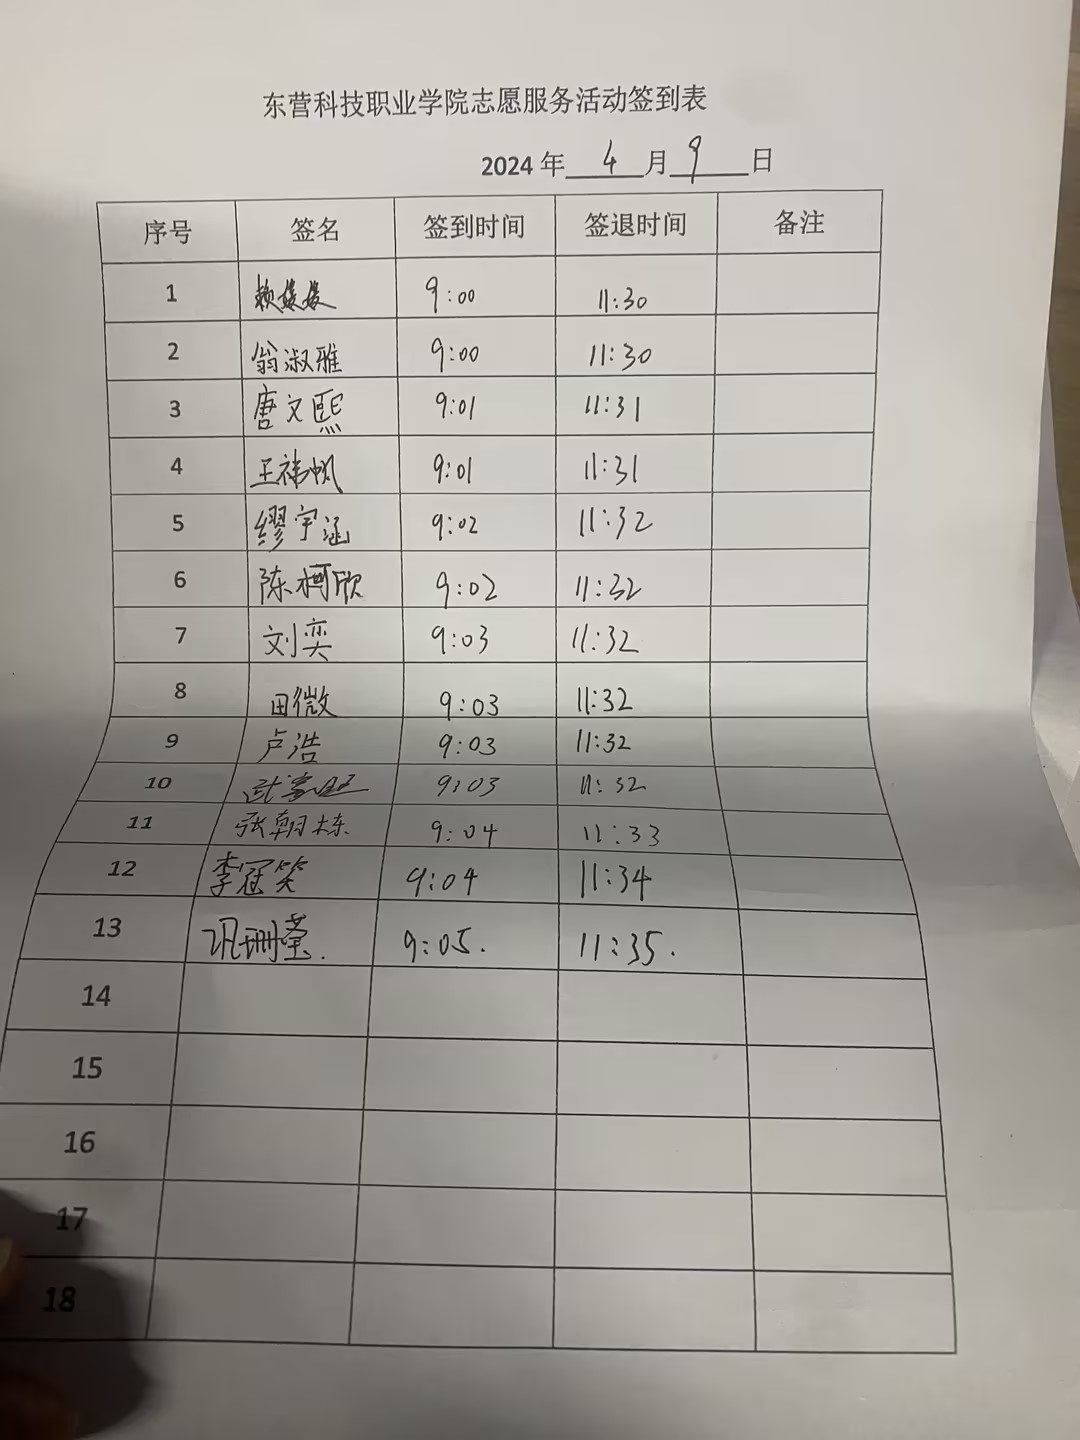 东营科技职业学院志愿服务活动签到表
2024 年 4 月 9 日
序号 签名 签到时间 签退时间 备注
1 赖媛媛 9:00 11:30
2 翁淑雅 9:00 11:30
3 唐文熙 9:01 11:31
4 王祎帆 9:01 11:31
5 缪宇涵 9:02 11:32
6 陈柯欣 9:02 11:32
7 刘奕 9:03 11:32
8 田微 9:03 11:32
9 卢浩 9:03 11:32
10 9:03 11:32
11 张朝栋 9:04 11:33
12 李冠笑 9:04 11:34
13 巩珊莹. 9:05. 11:35.
14
15
16
17
18